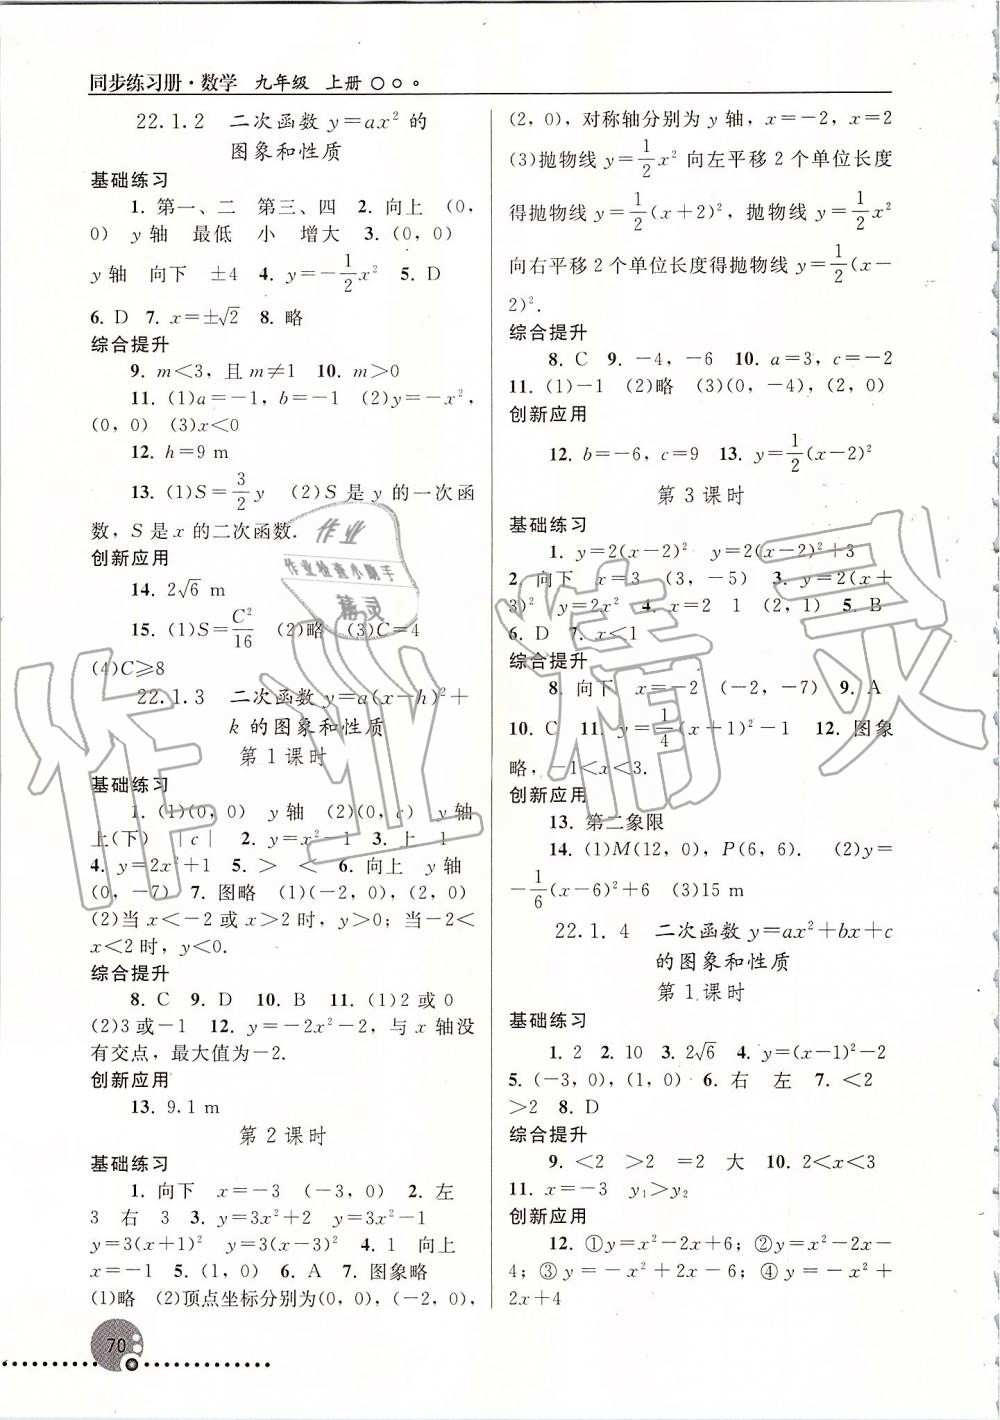 同步练习册·数学 九年级 上册
22.1.2 二次函数 y=ax² 的
图象和性质
基础练习
1. 第一、二 第三、四 2. 向上 (0,
0) y 轴 最低 小 增大 3. (0, 0)
y 轴 向下 ±4 4. y=-1/2x² 5. D
6. D 7. x=±√2 8. 略
综合提升
9. m<3, 且 m≠1 10. m>0
11. (1)a=-1, b=-1 (2)y=-x²,
(0, 0) (3)x<0
12. h=9 m
13. (1)S=3/2y (2)S 是 y 的一次函
数, S 是 x 的二次函数.
创新应用
14. 2√6 m
15. (1)S=C²/16 (2)略 (3)C=4
(4)C≥8
22.1.3 二次函数 y=a(x-h)²+
k 的图象和性质
第 1 课时
基础练习
1. (1)(0, 0) y 轴 (2)(0, c) y 轴
上(下) |c| 2. y=x²-1 3. 上 1
4. y=2x²+1 5. > < 6. 向上 y 轴
(0, -7) 7. 图略 (1)(-2, 0), (2, 0)
(2)当 x<-2 或 x>2 时, y>0; 当-2<
x<2 时, y<0.
综合提升
8. C 9. D 10. B 11. (1)2 或 0
(2)3 或-1 12. y=-2x²-2, 与 x 轴没
有交点, 最大值为-2.
创新应用
13. 9.1 m
第 2 课时
基础练习
1. 向下 x=-3 (-3, 0) 2. 左
3 右 3 3. y=3x²+2 y=3x²-1
y=3(x+1)² y=3(x-3)² 4. 1 向上
x=-1 5. (1, 0) 6. A 7. 图象略
(1)略 (2)顶点坐标分别为(0, 0), (-2, 0),
(2, 0), 对称轴分别为 y 轴, x=-2, x=2
(3)抛物线 y=1/2x² 向左平移 2 个单位长度
得抛物线 y=1/2(x+2)², 抛物线 y=1/2x²
向右平移 2 个单位长度得抛物线 y=1/2(x-
2)².
综合提升
8. C 9. -4, -6 10. a=3, c=-2
11. (1)-1 (2)略 (3)(0, -4), (2, 0)
创新应用
12. b=-6, c=9 13. y=1/2(x-2)²
第 3 课时
基础练习
1. y=2(x-2)² y=2(x-2)²+3
2 向下 x=3 (3, -5) 3. y=2(x+
3)² y=2x² 4. x=2 1 (2, 1) 5. B
6. D 7. x<1
综合提升
8. 向下 x=-2 (-2, -7) 9. A
10. C 11. y=1/4(x+1)²-1 12. 图象
略, -1<x<3.
创新应用
13. 第二象限
14. (1)M(12, 0), P(6, 6). (2)y=
-1/6(x-6)²+6 (3)15 m
22.1.4 二次函数 y=ax²+bx+c
的图象和性质
第 1 课时
基础练习
1. 2 2. 10 3. 2√6 4. y=(x-1)²-2
5. (-3, 0), (1, 0) 6. 右 左 7. <2
>2 8. D
综合提升
9. <2 >2 =2 大 10. 2<x<3
11. x=-3 y₁>y₂
创新应用
12. ①y=x²-2x+6; ②y=x²-2x-
4; ③y=-x²+2x-6; ④y=-x²+
2x+4
70
作业
作业检查小助手
精灵
作业精灵